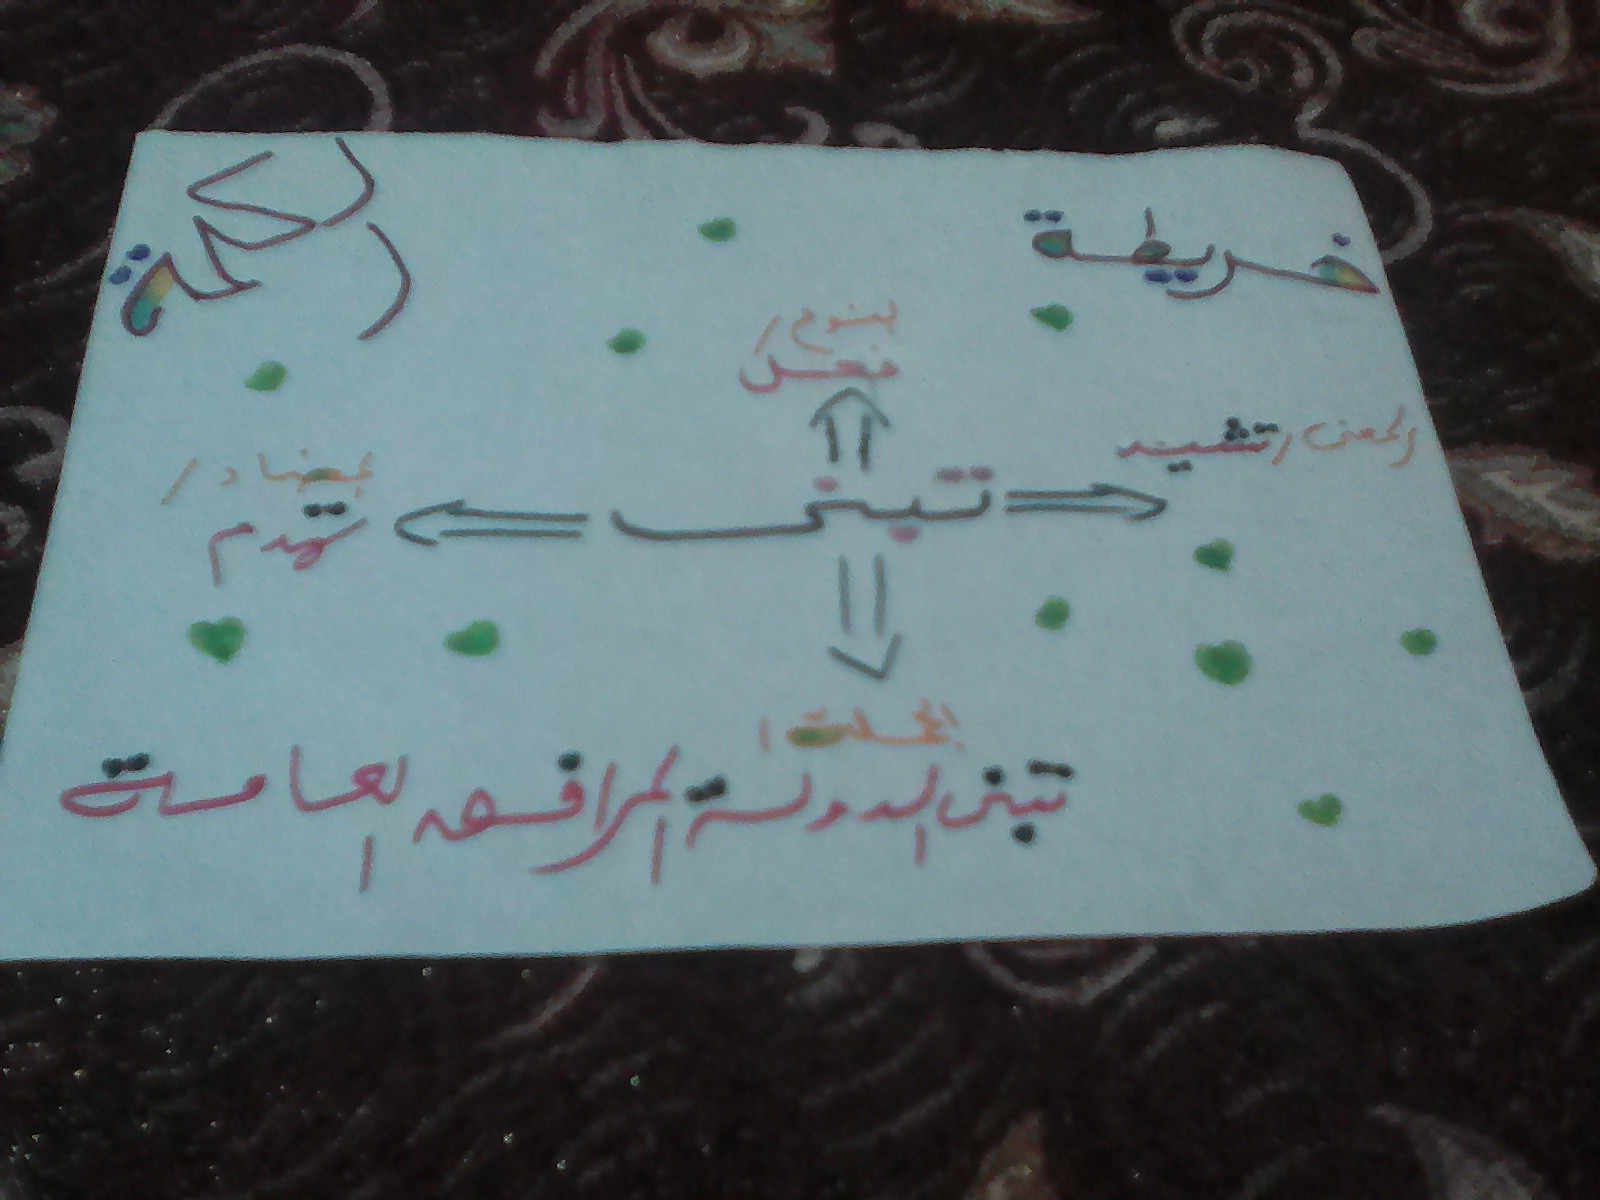 خريطة الكلمة
النوع / فعل
المعنى / تشيد
تبنى
المضاد / تهدم
الجملة /
تبنى الدولة المرافق العامة